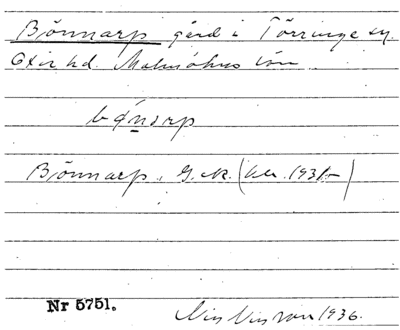 Bönnarp gård i Törringe sn.
Oxie hd. Malmöhus län.
bǿnarp
Bönnarp, G.K. (ekv. 1931-)
Nr 5751.
Nils Nilsson 1936.